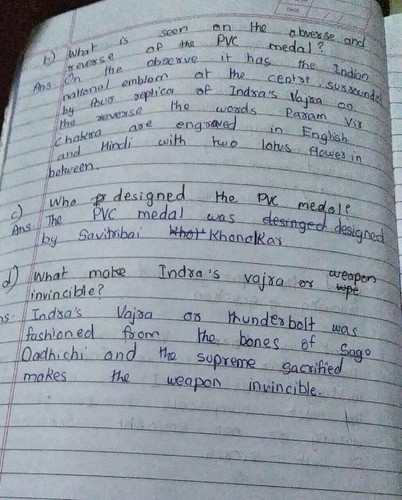 b) What is seen on the obverse and
reverse of the PVC medal?
Ans On the observe it has the Indian
national emblem at the centre, surrounded
by four replica of Indra's Vajra on
the reverse the words Param Vir
Chakra are engraved in English
and Hindi with two lotus flower in
between.
c) Who designed the PVC medal?
Ans. The PVC medal was desinged designed
by Savitribai Khot Khanolkar
d) What make Indra's vajra or weapon
invincible?
ns. Indra's Vajra or thunderbolt was
fashioned from the bones of Sage
Dadhichi and the supreme sacrified
makes the weapon invincible.